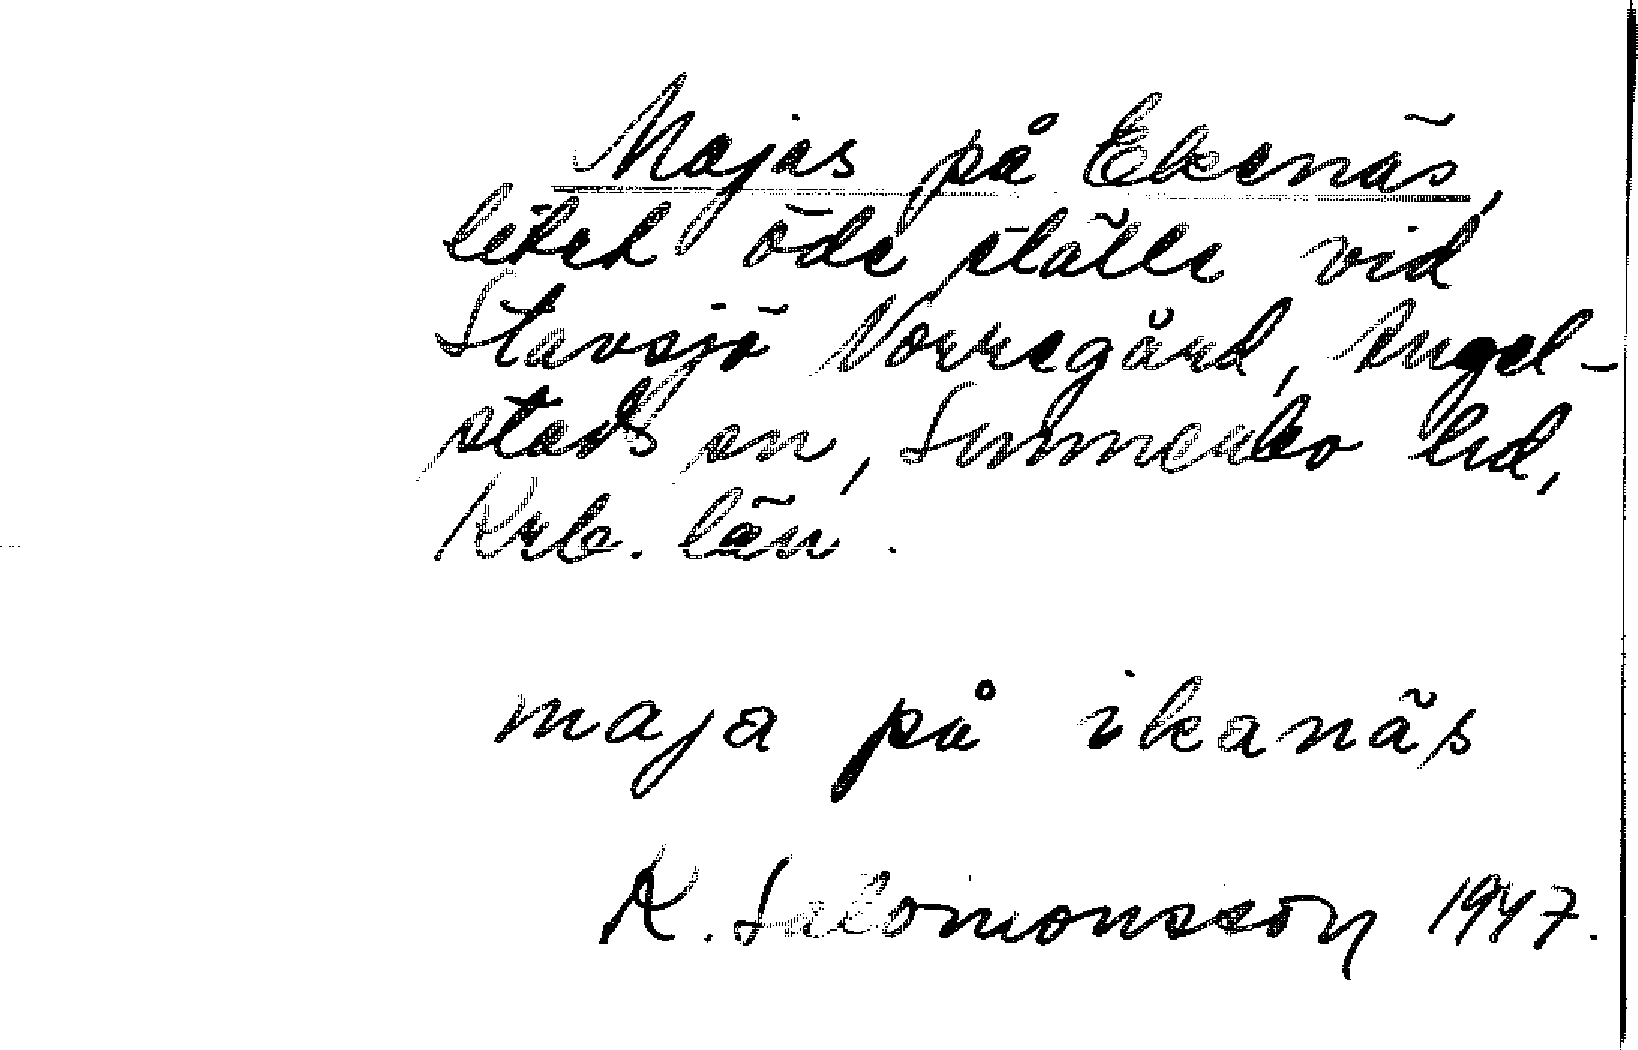 Majas på Ekenäs,
litet öde ställe vid
Stavsjö Norregård, Angel-
stads sn, Sunnerbo hd,
Krb. län.
maja på ikanäs
K. Salomonsson 1947.